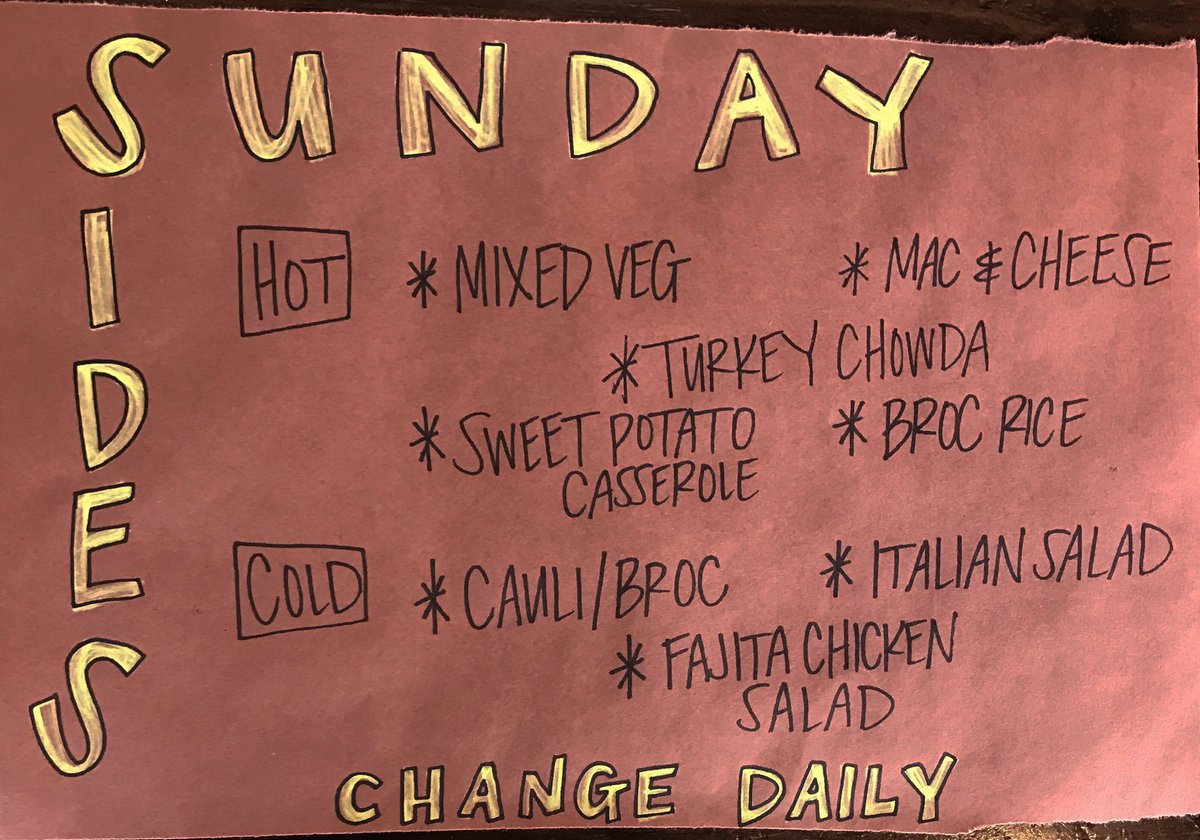 SUNDAY
SIDES
HOT
* MIXED VEG
* MAC & CHEESE
* TURKEY CHOWDA
* SWEET POTATO
CASSEROLE
* BROC RICE
COLD
* CAULI/BROC
* ITALIAN SALAD
* FAJITA CHICKEN
SALAD
CHANGE DAILY